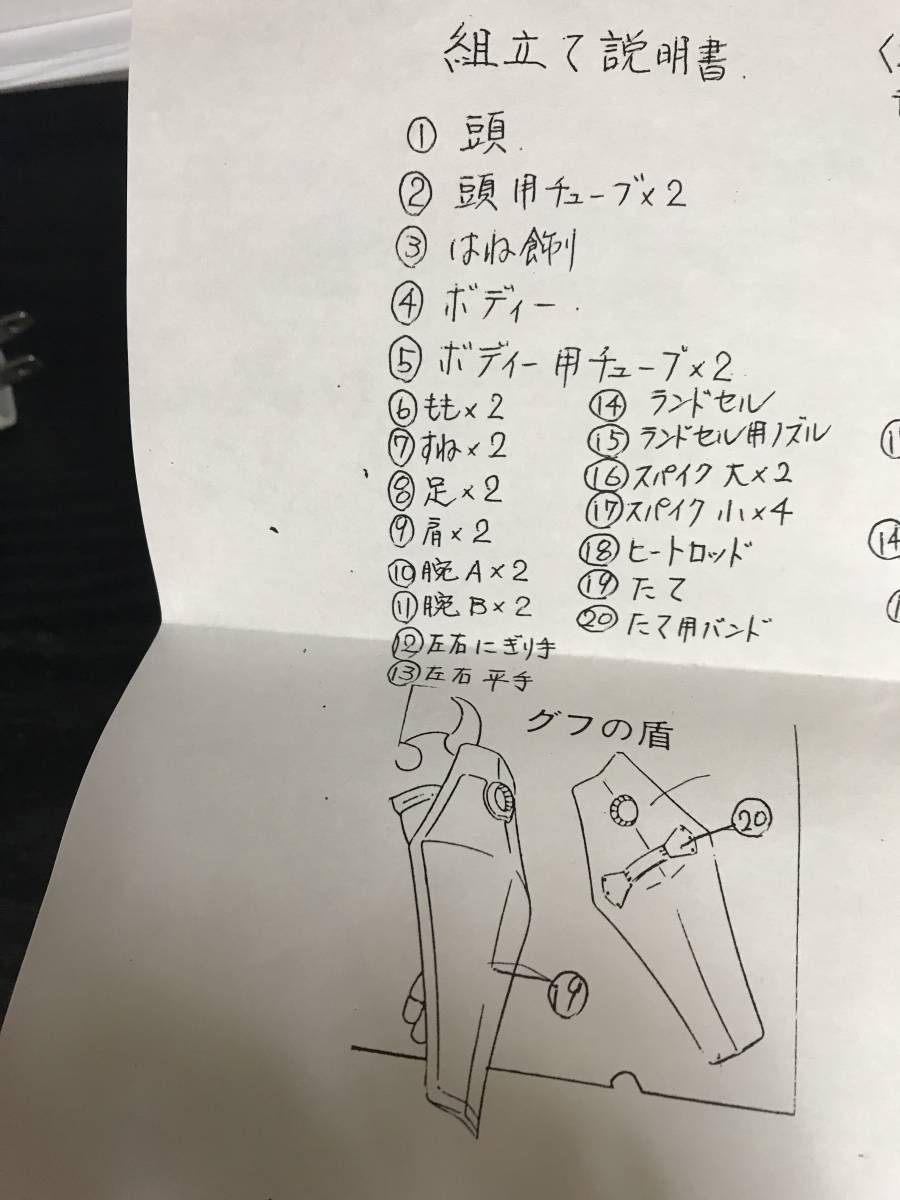 組立て説明書.
① 頭.
② 頭用チューブ×2
③ はね飾り
④ ボディー.
⑤ ボディー用チューブ×2
⑥ もも×2
⑦ すね×2
⑧ 足×2
⑨ 肩×2
⑩ 腕A×2
⑪ 腕B×2
⑫ 左右にぎり手
⑬ 左右 平手
⑭ ランドセル
⑮ ランドセル用ノズル
⑯ スパイク 大×2
⑰ スパイク 小×4
⑱ ヒートロッド
⑲ たて
⑳ たて用バンド
グフの盾
⑳
⑲
⑭